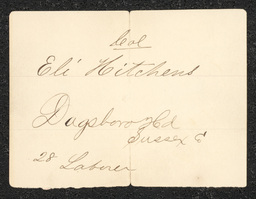 Eli Hitchens
Dagsboro Hd
Sussex C
28 Laborer